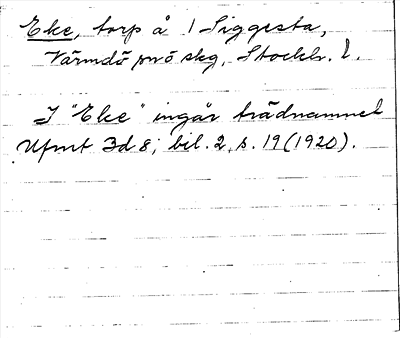 Eke, torp å 1 Siggesta,
Värmdö prvö skg, Stockh. l.
I "Eke" ingår trädnamnet
Ufmt 3d 8; bil. 2, s. 19 (1920).